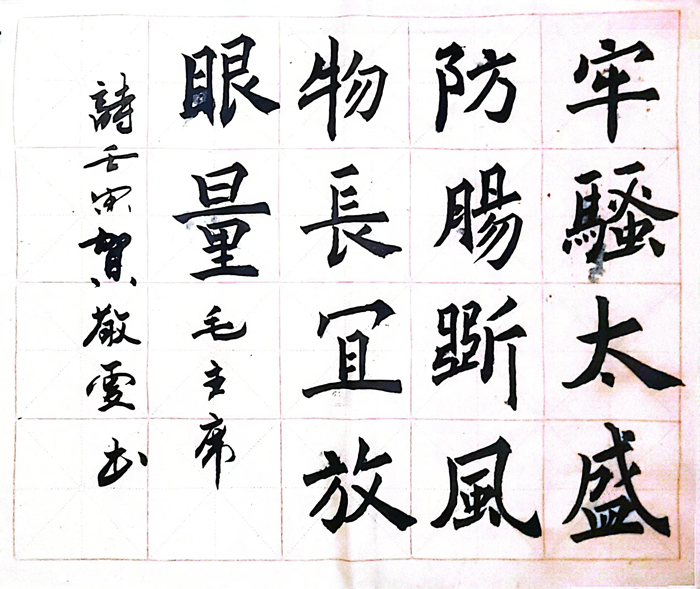 牢騷太盛
防腸斷風
物長宜放
眼量毛主席
詩壬寅賀敬雲书